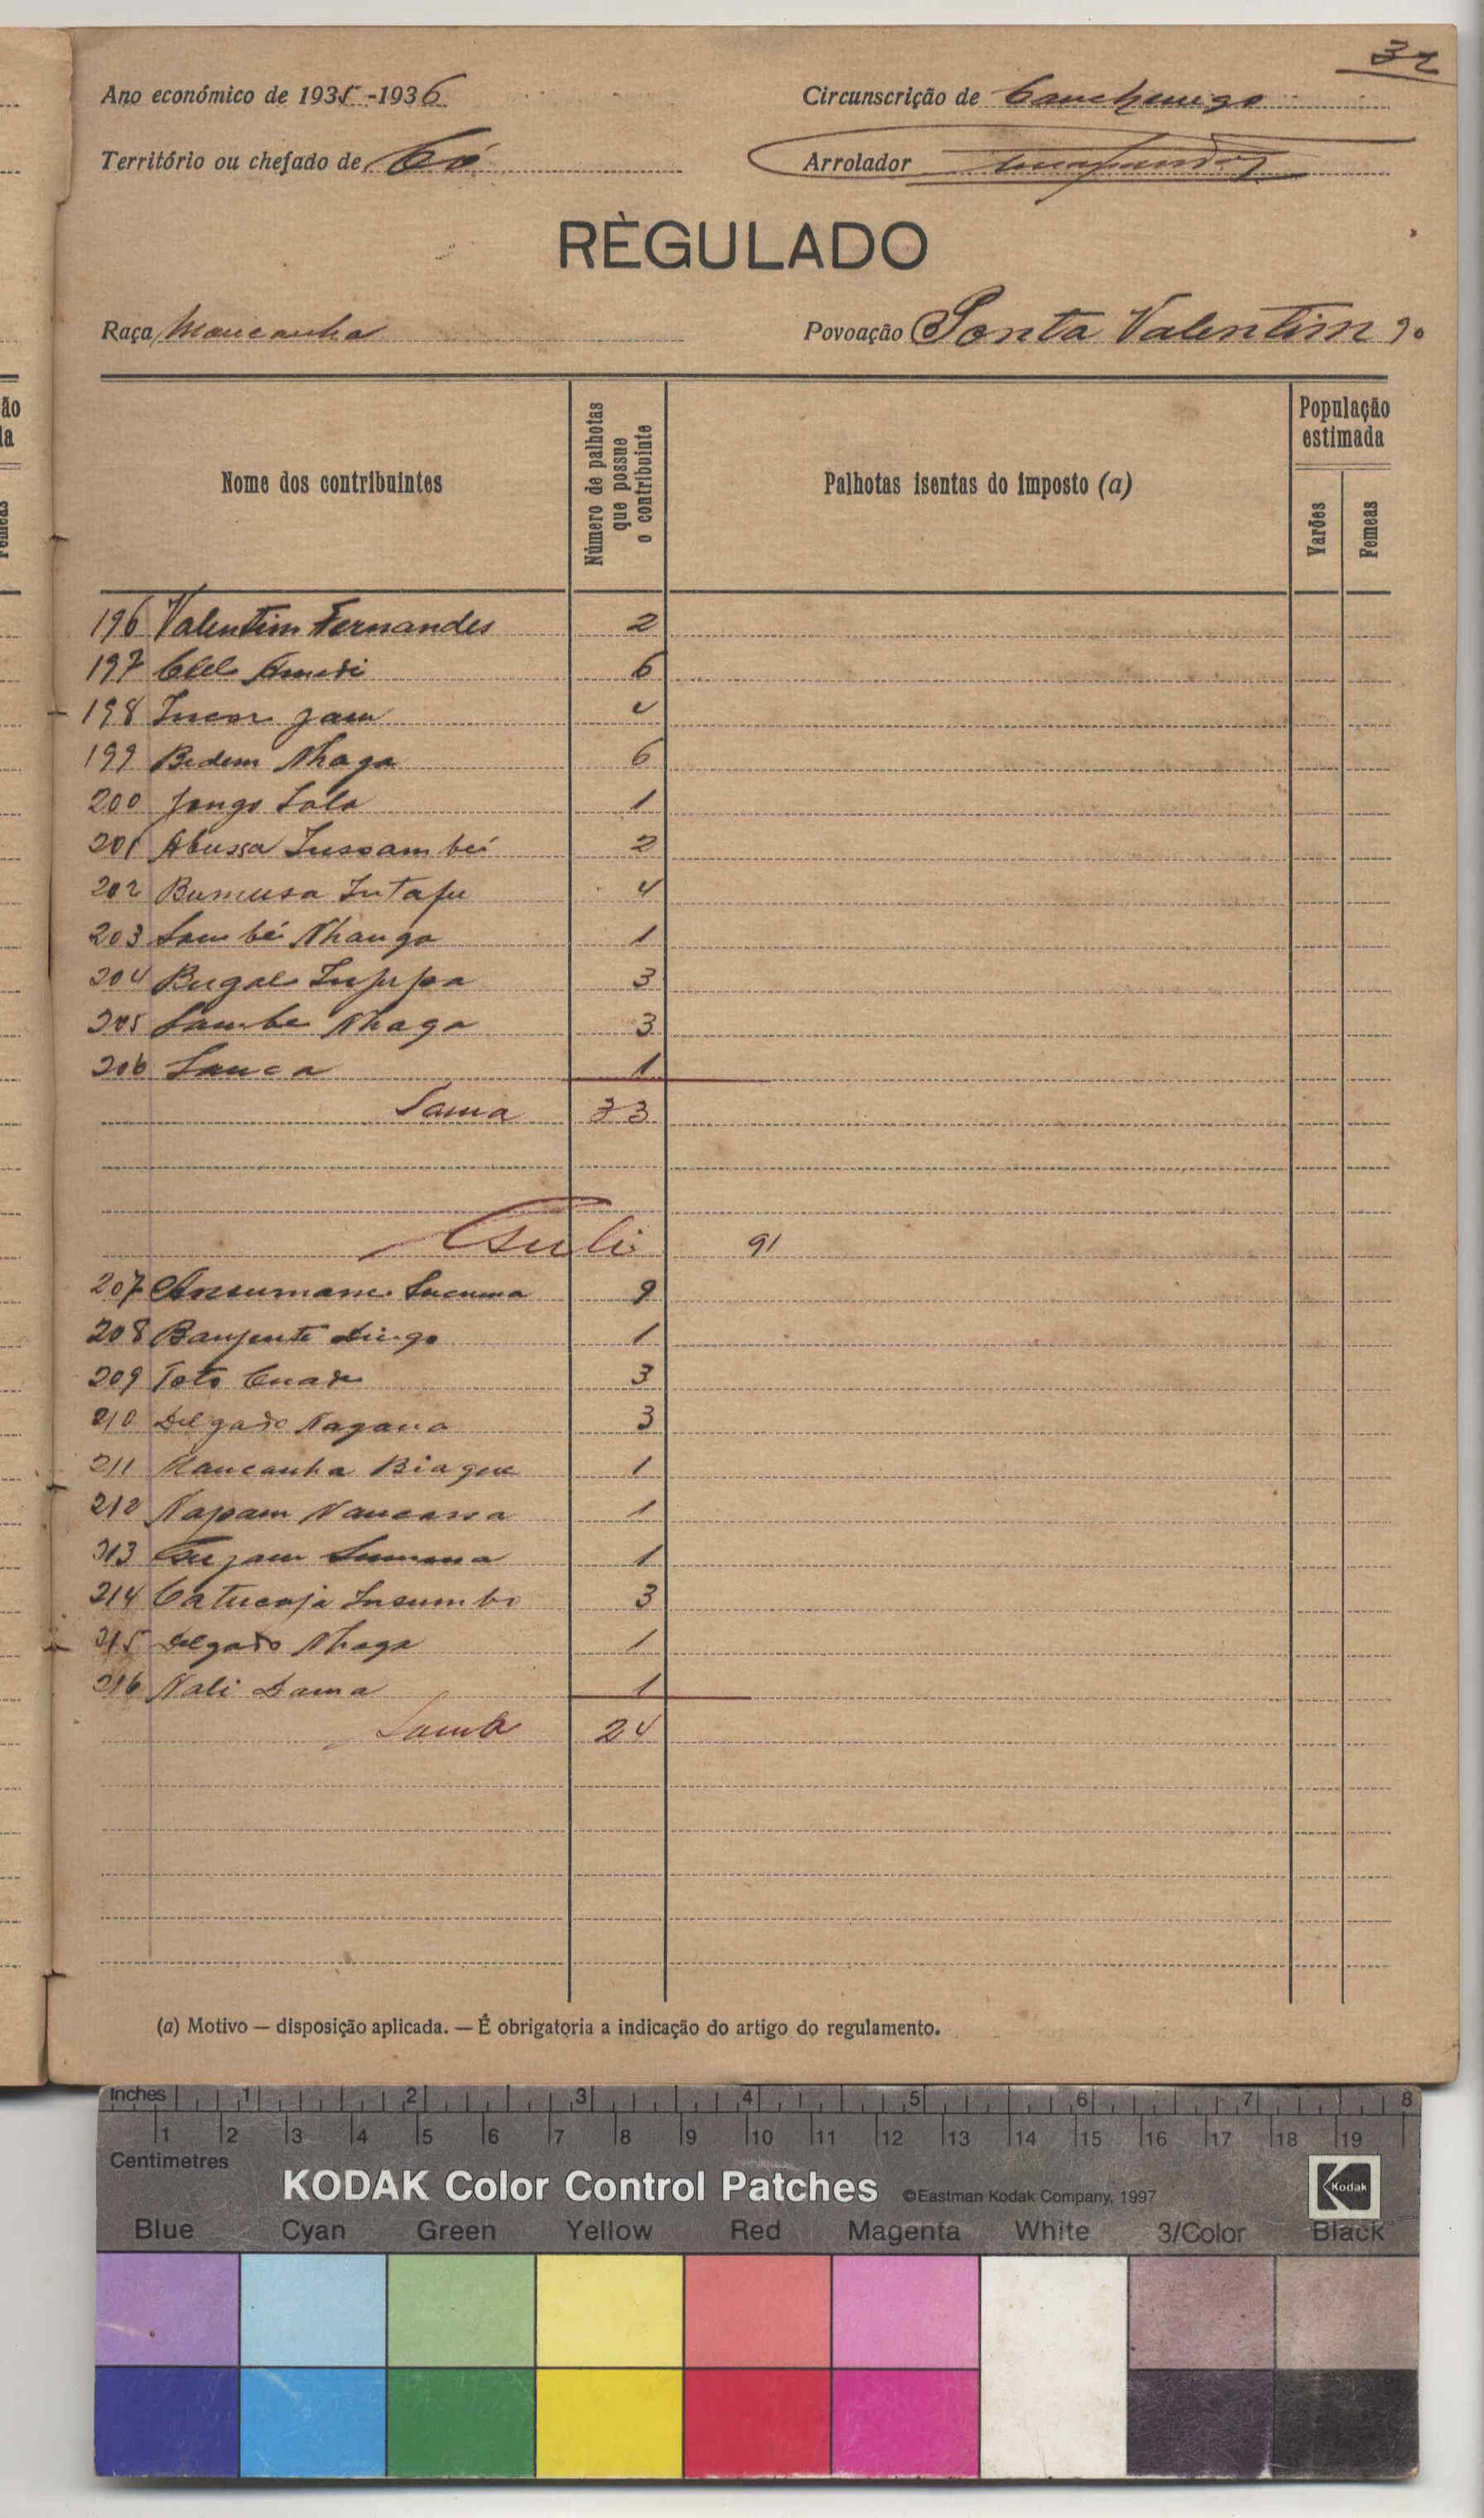 32
Ano económico de 1935-1936
Circunscrição de Canchungo
Território ou chefado de Có
Arrolador
RÈGULADO
Raça Mancanha
Povoação Ponta Valentim 90
Nome dos contribuintes
Número de palhotas que possue o contribuinte
Palhotas isentas do imposto (a)
População estimada
Varões
Femeas
196 Valentim Fernandes 2
197 6
198 Jam
199 Bedem Nhaga 6
200 Jongo Sala 1
201 Abussa 2
202 Bumusa Intafu 4
203 Sambé Nhanga 1
204 Bugale 3
205 Sambe Nhaga 3
206 Sanca 1
Soma 33
91
207 Ansumane 9
208 1
209 Toto 3
210 Delgado Nagana 3
211 Mancanha Biague 1
212 Napam Nancassa 1
213 1
214 Catucaja Insumbo 3
215 Delgado Nhaga 1
216 Nali Dama 1
Soma 24
(a) Motivo — disposição aplicada. — É obrigatoria a indicação do artigo do regulamento.
Inches 1 2 3 4 5 6 7 8
1 2 3 4 5 6 7 8 9 10 11 12 13 14 15 16 17 18 19
Centimetres
KODAK Color Control Patches ©Eastman Kodak Company, 1997 Kodak
Blue Cyan Green Yellow Red Magenta White 3/Color Black